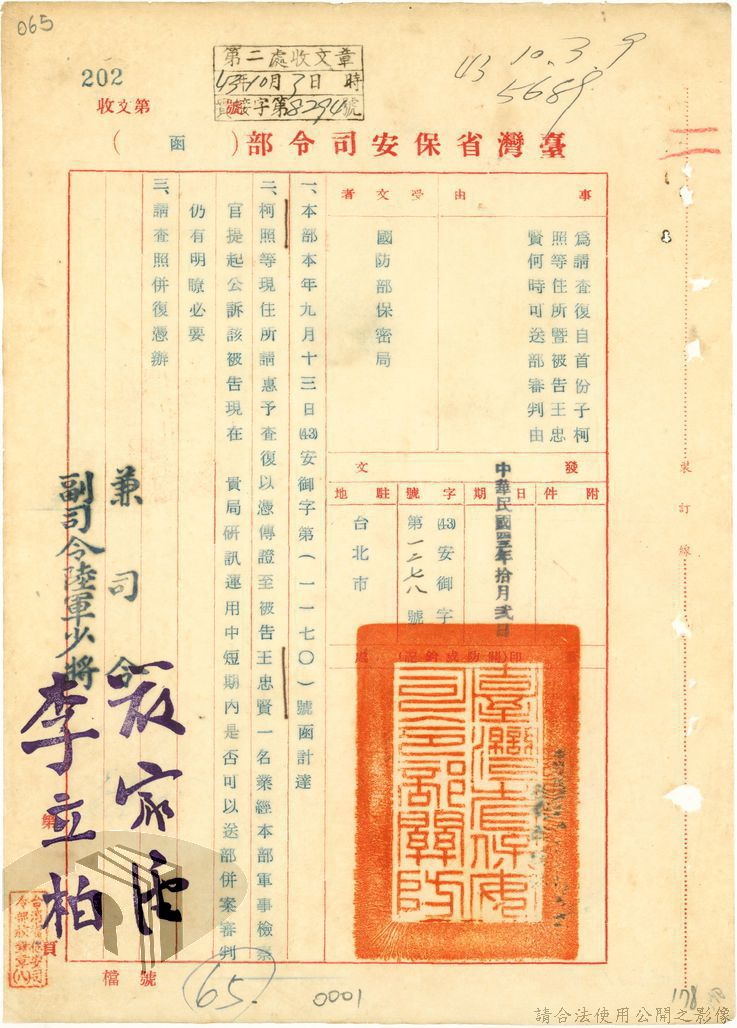 065
202
收文第
第二處收文章
43年10月3日 時
字第8294號
43 10.3.9
5689
臺灣省保安司令部（函）
事由
為請查復自首份子柯
照等住所暨被告王忠
賢何時可送部審判由
受文者
國防部保密局
發文
附件
日期
中華民國肆叁年拾月貳日
字號
(43)安御字
第一二七八號
駐地
台北市
臺灣省保安司令部關防
一、本部本年九月十三日(43)安御字第(一一七〇)號函計達
二、柯照等現住所請惠予查復以憑傳證至被告王忠賢一名業經本部軍事檢察
官提起公訴該被告現在 貴局研訊運用中短期內是否可以送部併案審判
仍有明瞭必要
三、請查照併復憑辦
兼司令
副司令陸軍少將
李立柏
裝訂線
第
頁
檔號
65.
0001
178
請合法使用公開之影像